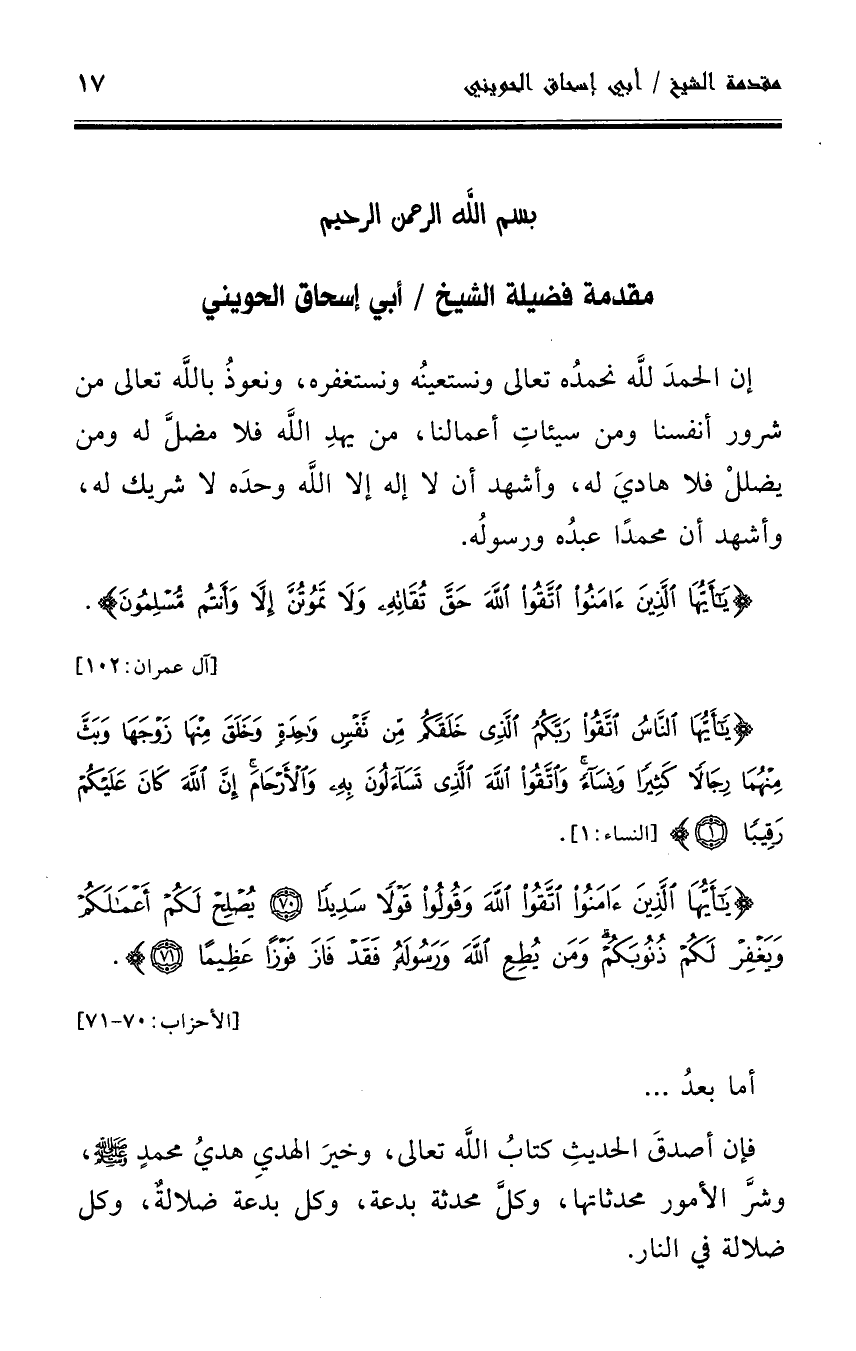 مقدمة الشيخ / أبي إسحاق الحويني ١٧
بسم اللَّه الرحمن الرحيم
مقدمة فضيلة الشيخ / أبي إسحاق الحويني
إن الحمدَ للَّه نحمدُه تعالى ونستعينُه ونستغفره، ونعوذُ باللَّه تعالى من
شرور أنفسنا ومن سيئاتِ أعمالنا، من يهدِ اللَّه فلا مضلَّ له ومن
يضللْ فلا هاديَ له، وأشهد أن لا إله إلا اللَّه وحدَه لا شريك له،
وأشهد أن محمدًا عبدُه ورسولُه.
﴿يَٰٓأَيُّهَا ٱلَّذِينَ ءَامَنُوا۟ ٱتَّقُوا۟ ٱللَّهَ حَقَّ تُقَاتِهِۦ وَلَا تَمُوتُنَّ إِلَّا وَأَنتُم مُّسْلِمُونَ﴾.
[آل عمران: ١٠٢]
﴿يَٰٓأَيُّهَا ٱلنَّاسُ ٱتَّقُوا۟ رَبَّكُمُ ٱلَّذِى خَلَقَكُم مِّن نَّفْسٍ وَٰحِدَةٍ وَخَلَقَ مِنْهَا زَوْجَهَا وَبَثَّ
مِنْهُمَا رِجَالًا كَثِيرًا وَنِسَآءً ۚ وَٱتَّقُوا۟ ٱللَّهَ ٱلَّذِى تَسَآءَلُونَ بِهِۦ وَٱلْأَرْحَامَ ۚ إِنَّ ٱللَّهَ كَانَ عَلَيْكُمْ
رَقِيبًا ١﴾ [النساء: ١].
﴿يَٰٓأَيُّهَا ٱلَّذِينَ ءَامَنُوا۟ ٱتَّقُوا۟ ٱللَّهَ وَقُولُوا۟ قَوْلًا سَدِيدًا ٧٠ يُصْلِحْ لَكُمْ أَعْمَٰلَكُمْ
وَيَغْفِرْ لَكُمْ ذُنُوبَكُمْ ۗ وَمَن يُطِعِ ٱللَّهَ وَرَسُولَهُۥ فَقَدْ فَازَ فَوْزًا عَظِيمًا ٧١﴾.
[الأحزاب: ٧٠-٧١]
أما بعدُ ...
فإن أصدقَ الحديثِ كتابُ اللَّه تعالى، وخيرَ الهديِ هديُ محمدٍ ﷺ،
وشرَّ الأمور محدثاتها، وكلَّ محدثة بدعة، وكل بدعة ضلالةٌ، وكل
ضلالة في النار.